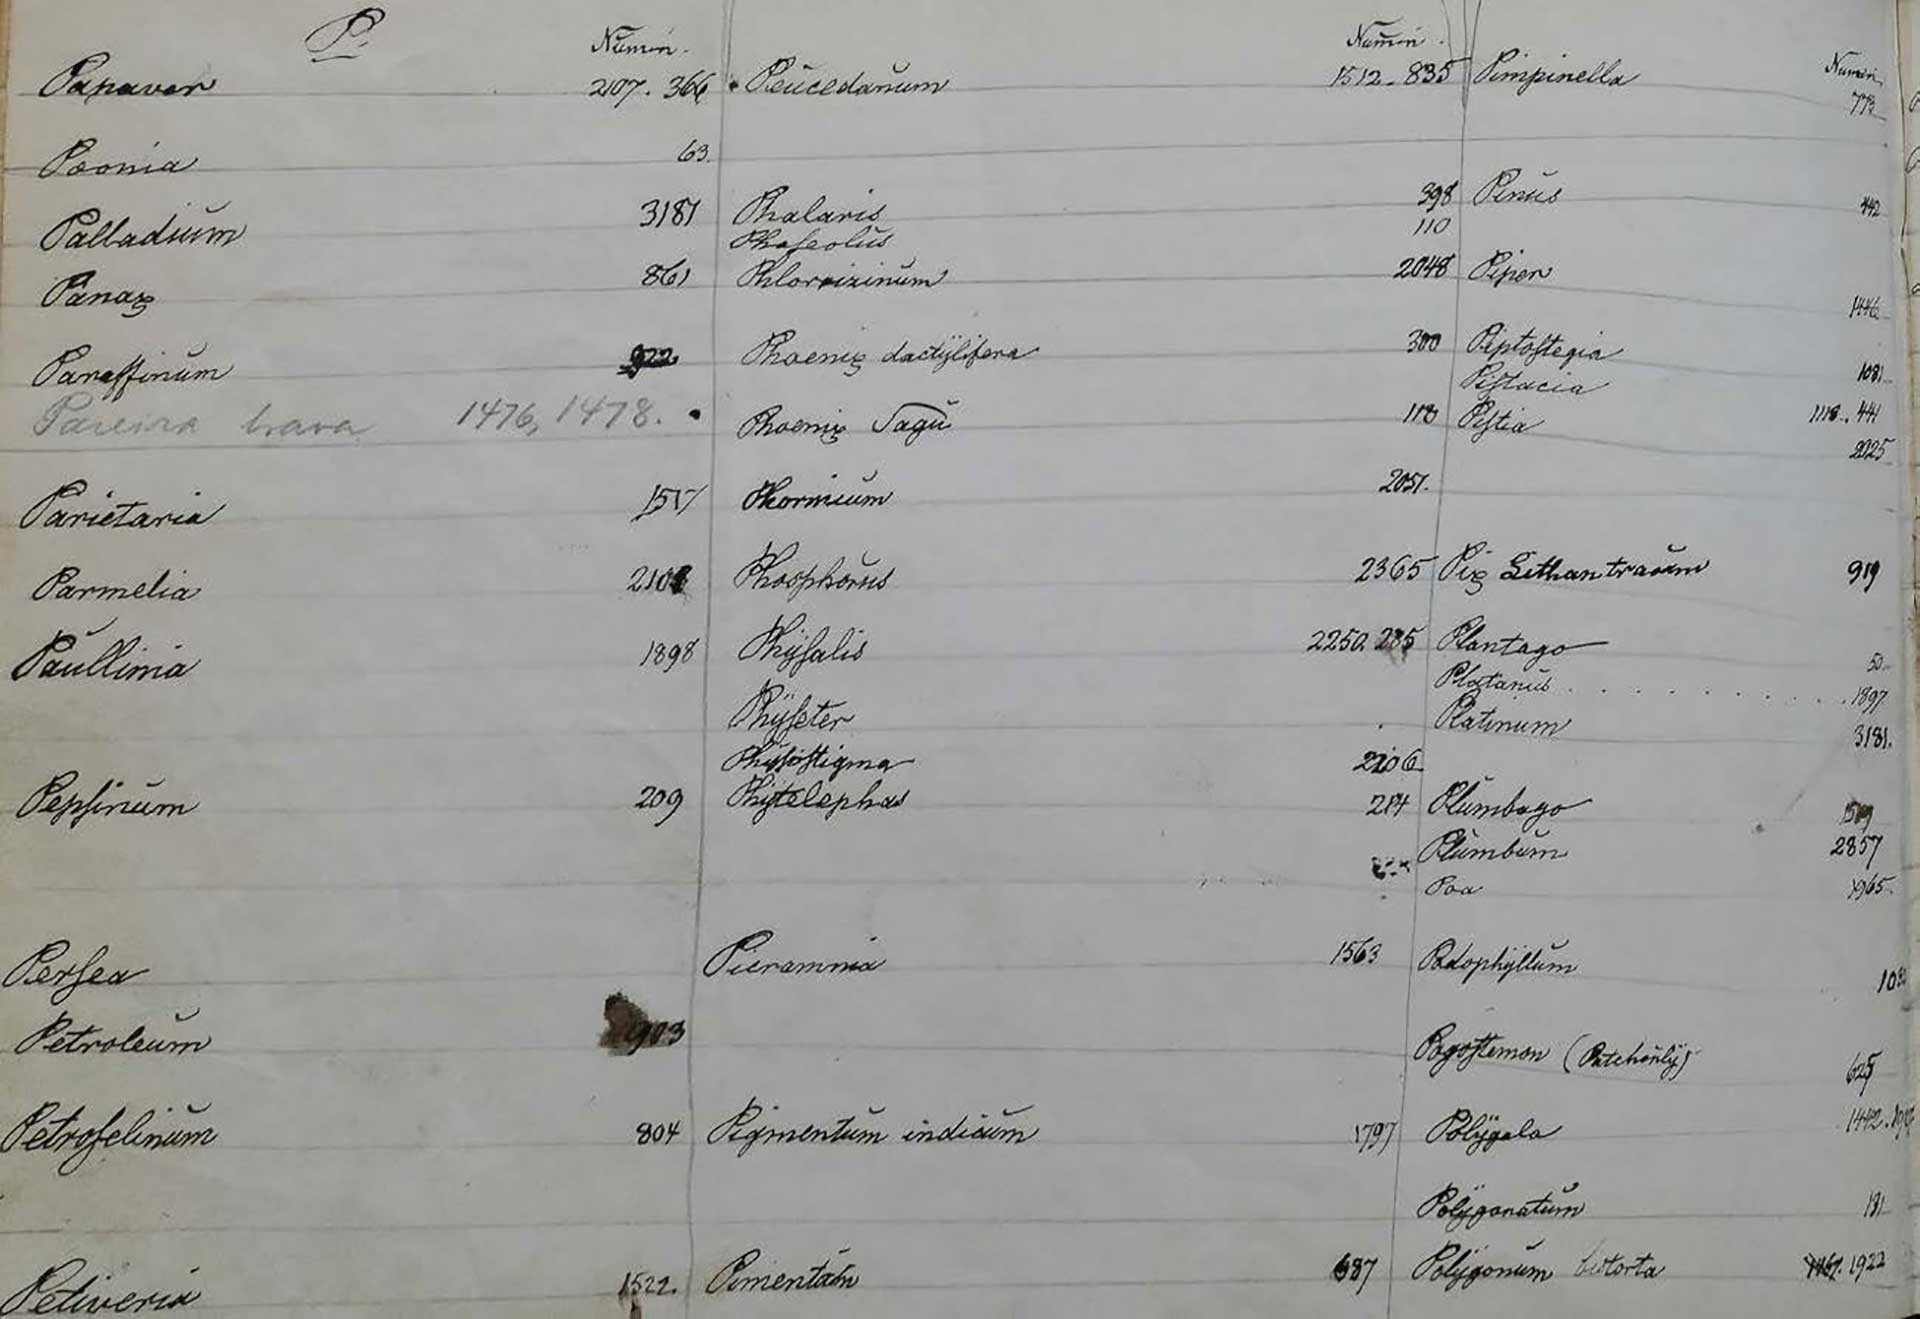 P.
Numm.
Papaver 2107. 366
Pæonia 63.
Palladium 3181
Panax 861
Paraffinum 922
Pareira brava 1476, 1478.
Parietaria 1517
Parmelia 2108
Paullinia 1898
Pepsinum 209
Persea
Petroleum 903
Petroselinum 804
Petiveria 1522.
Numm.
Peucedanum 1512. 835
Phalaris 398
Phaseolus 110
Phlorrizinum 2048
Phoenix dactylifera 300
Phoenix Sagu 118
Phormium 2051.
Phosphorus 2365
Physalis 2250. 285
Physeter
Physostigma 2206
Phytelephas 214
Picramnia 1563
Pigmentum indicum 1797
Pimentum 687
Numm.
Pimpinella 773
Pinus 442
Piper 1446
Piptostegia 1081
Pistacia 1118. 441
Pistia 2025
Pix Lithantracum 919
Plantago 50
Platanus . . . . . . . . . . 1897
Platinum 3181.
Plumbago 1519
Plumbum 2857
Poa 1965.
Podophyllum
Pogostemon (Patchouly) 625
Polygala 1442.
Polygonatum 181
Polygonum bistorta 1922